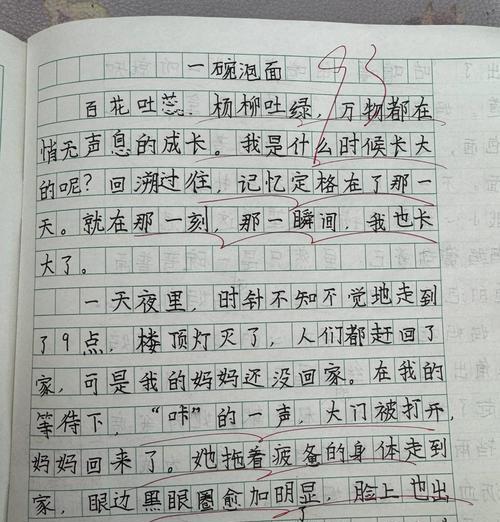 一碗泡面
93
百花吐蕊，杨柳吐绿，万物都在
悄无声息的成长。我是什么时候长大
的呢？回溯过往，记忆定格在了那一
天。就在那一刻，那一瞬间，我也长
大了。
一天夜里，时针不知不觉地走到
了9点，楼顶灯灭了，人们都赶回了
家，可是我的妈妈还没回家。在我的
等待下，“咔”的一声，大门被打开，
妈妈回来了。她拖着疲惫的身体走到
家，眼边黑眼圈愈加明显，脸上也出
了